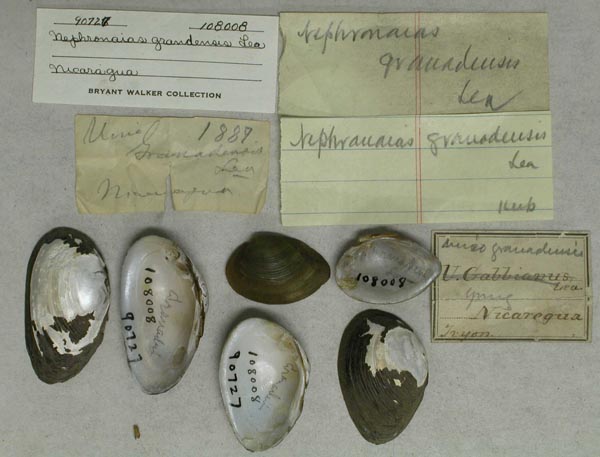 90727 108008
Nephronaias grandensis Lea
Nicaragua
BRYANT WALKER COLLECTION
Nephronaias
granadensis
Lea
Unio 1887
Granadensis
Lea
Nicaragua
Nephronaias granadensis
Lea
Unio granadensis
U. Gabbianus
Lea
Young
Nicaragua
Tryon
108008
90727
108008
108008
90727